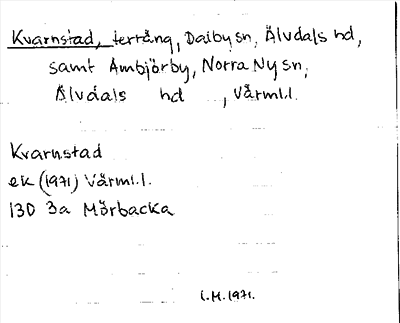 Kvarnstad, terräng, Dalby sn, Älvdals hd,
samt Ambjörby, Norra Ny sn,
Älvdals hd , Värml.l.
Kvarnstad
ek (1971) Värml.l.
13D 3a Mårbacka
L.M. 1971.